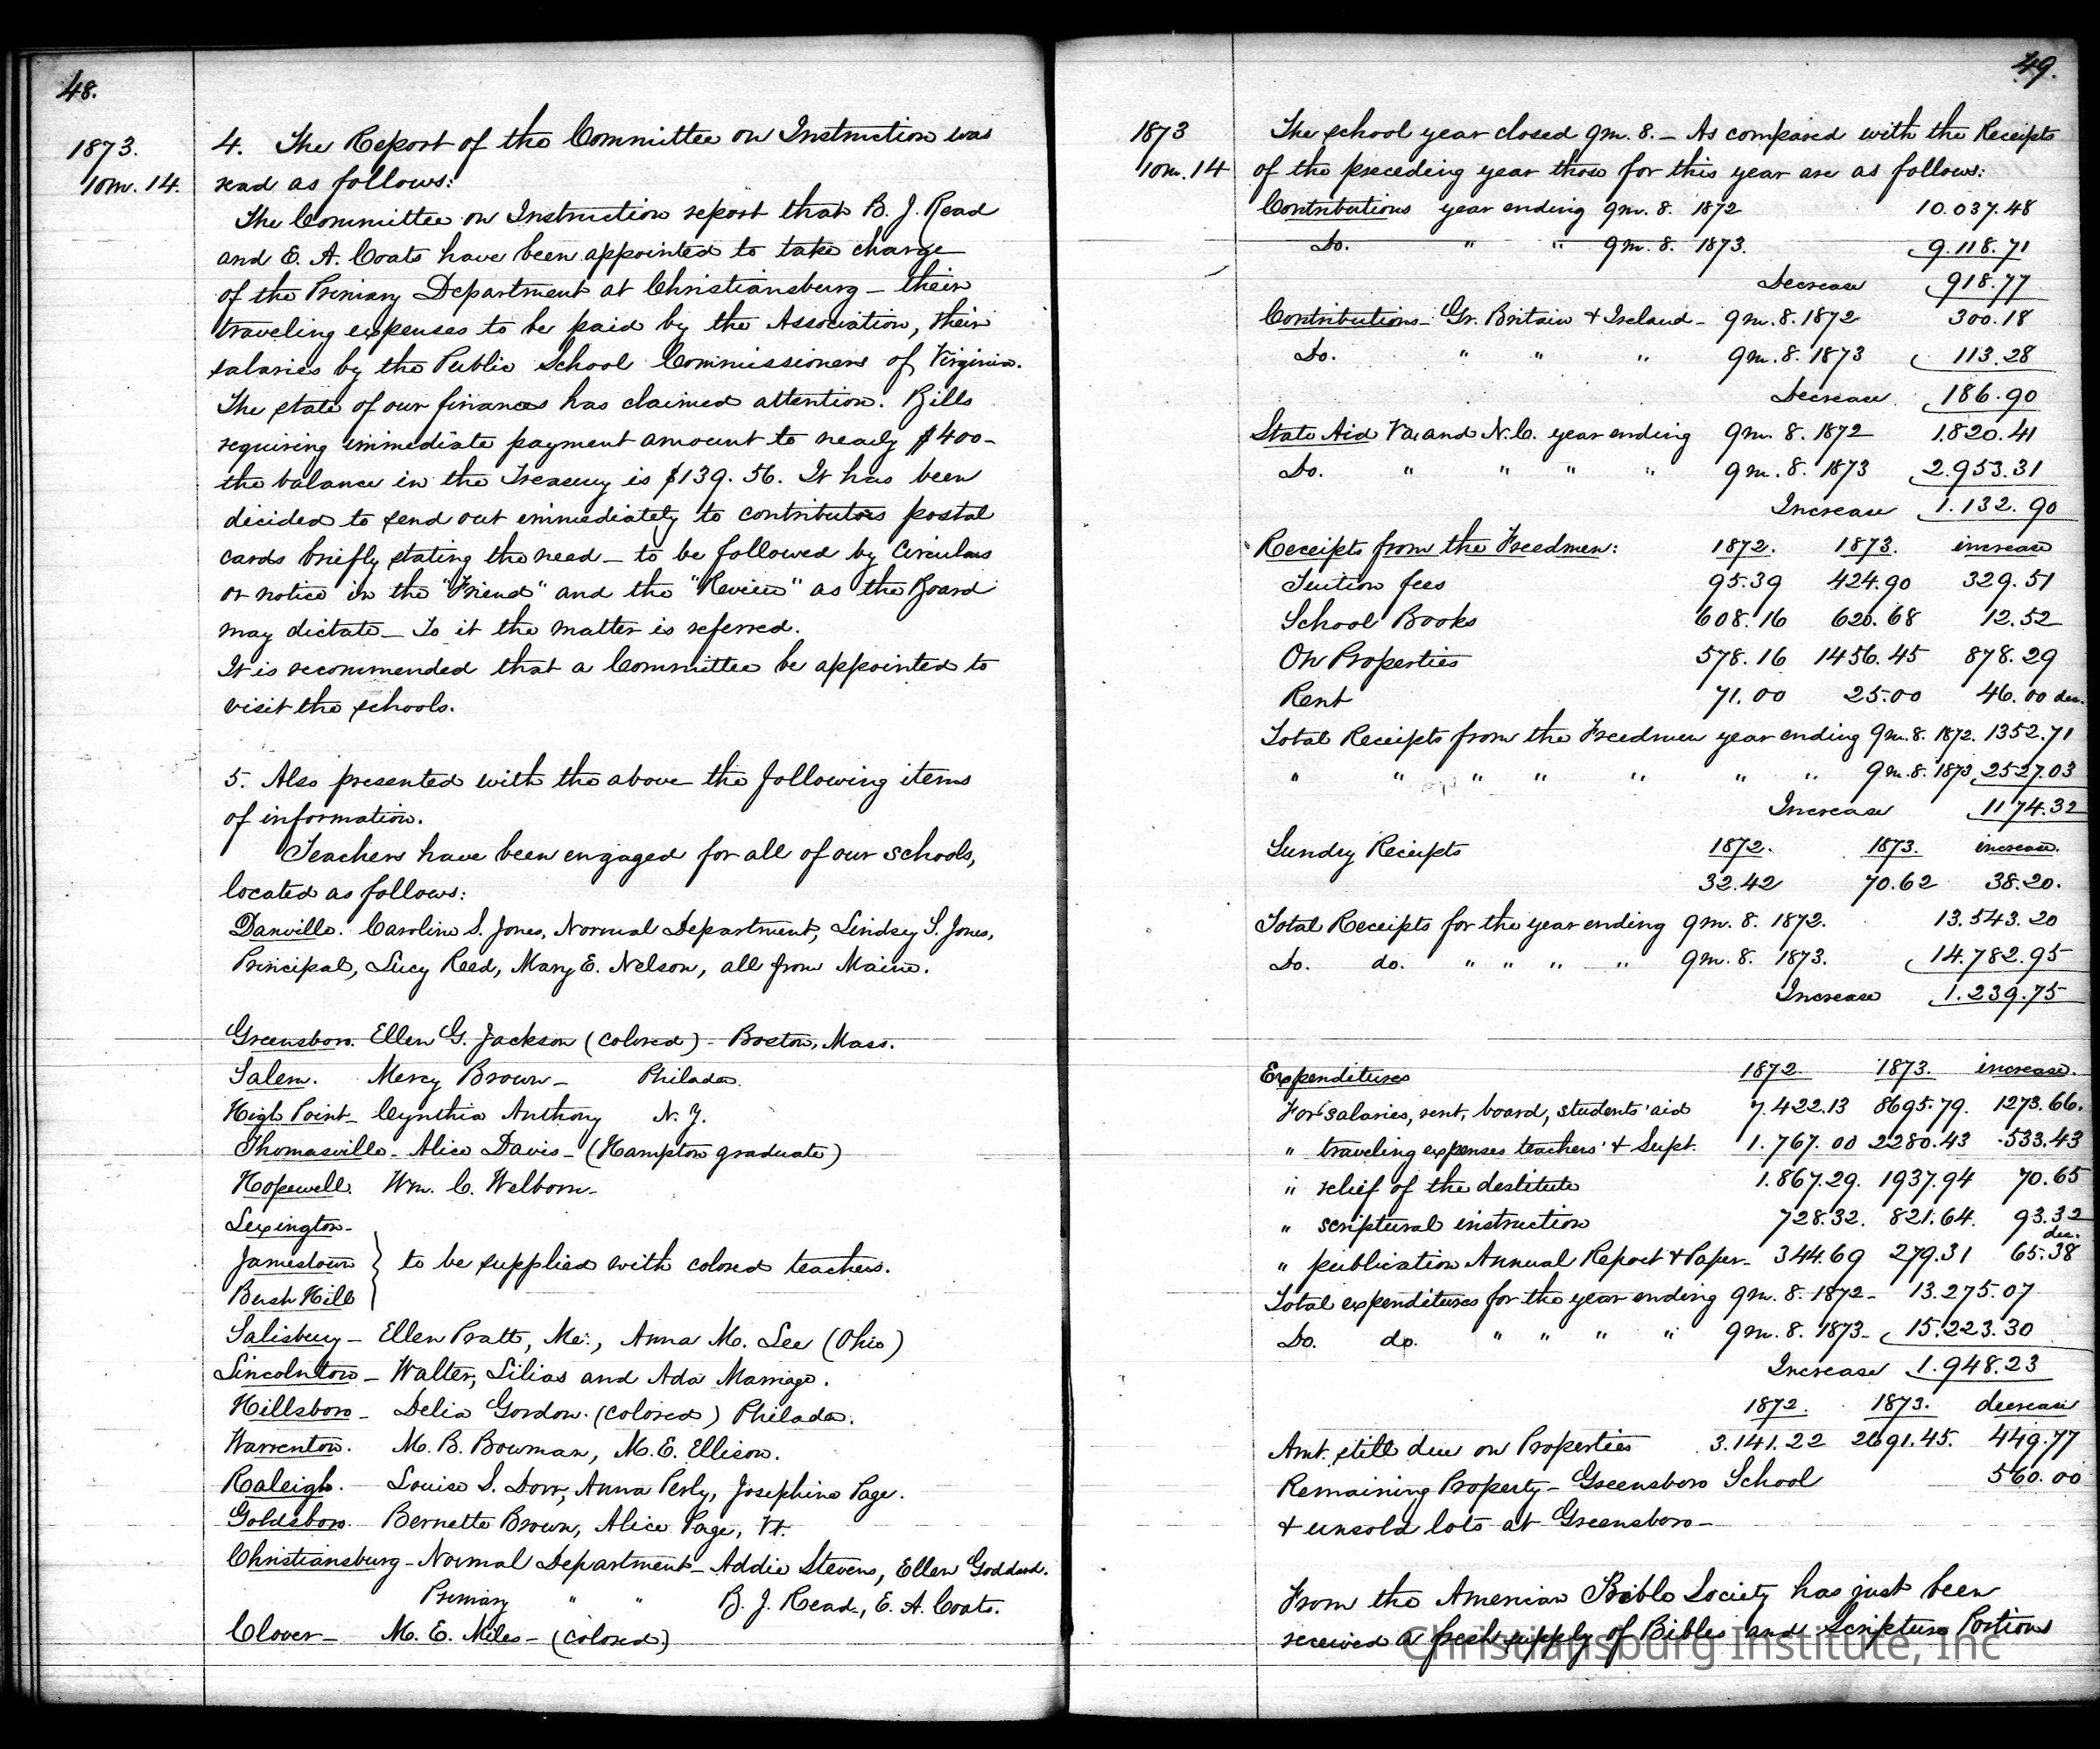 48.
1873.
10m. 14.
4. The Report of the Committee on Instruction was
read as follows:
The Committee on Instruction report that B. J. Read
and E. A. Coats have been appointed to take charge
of the Primary Department at Christiansburg - their
traveling expenses to be paid by the Association, their
salaries by the Public School Commissioners of Virginia.
The state of our finances has claimed attention. Bills
requiring immediate payment amount to nearly $400-
the balance in the Treasury is $139.56. It has been
decided to send out immediately to contributors postal
cards briefly stating the need - to be followed by Circulars
or notice in the "Friend" and the "Review" as the Board
may dictate - To it the matter is referred.
It is recommended that a Committee be appointed to
visit the schools.
5. Also presented with the above the following items
of information.
Teachers have been engaged for all of our schools,
located as follows:
Danville. Caroline S. Jones, Normal Department, Lindsey S. Jones,
Principal, Lucy Reed, Mary E. Nelson, all from Maine.
Greensboro. Ellen G. Jackson (colored) - Boston, Mass.
Salem. Mercy Brown - Philada.
High Point - Cynthia Anthony N.Y.
Thomasville - Alice Davis - (Hampton graduate)
Hopewell. Wm. C. Welborn -
Lexington -
Jamestown } to be supplied with colored teachers.
Bush Hill
Salisbury - Ellen Pratt, Me., Anna M. Lee (Ohio)
Lincolnton - Walter, Lilias and Ada Marriage.
Hillsboro - Delia Gordon. (colored) Philada.
Warrenton. M. B. Bowman, M. E. Ellison.
Raleigh. Louise S. Dorr, Anna Perly, Josephine Page.
Goldsboro. Bernette Brown, Alice Page, Vt.
Christiansburg - Normal Department - Addie Stevens, Ellen Goddard.
Primary " " B. J. Read, E. A. Coats.
Clover - M. E. Miles - (colored)
49.
1873
10m. 14
The school year closed 9m. 8. - As compared with the Receipts
of the preceding year those for this year are as follows:
Contributions year ending 9m. 8. 1872 10.037.48
Do. " " 9m. 8. 1873. 9.118.71
Decrease 918.77
Contributions - Gr. Britain & Ireland - 9m. 8. 1872 300.18
Do. " " " 9m. 8. 1873 113.28
Decrease 186.90
State Aid Va. and N.C. year ending 9m. 8. 1872 1.820.41
Do. " " " " 9m. 8. 1873 2.953.31
Increase 1.132.90
Receipts from the Freedmen: 1872. 1873. increase
Tuition fees 95.39 424.90 329.51
School Books 608.16 620.68 12.52
On Properties 578.16 1456.45 878.29
Rent 71.00 25.00 46.00 dec.
Total Receipts from the Freedmen year ending 9m. 8. 1872. 1352.71
" " " " " " " 9m. 8. 1873, 2527.03
Increase 1174.32
Sundry Receipts 1872. 1873. increase.
32.42 70.62 38.20.
Total Receipts for the year ending 9m. 8. 1872. 13.543.20
Do. do. " " " " 9m. 8. 1873. 14.782.95
Increase 1.239.75
Expenditures 1872. 1873. increase.
For salaries, rent, board, students' aid 7.422.13 8695.79. 1273.66.
" traveling expenses teachers' & Supt. 1.767.00 2280.43 533.43
" relief of the destitute 1.867.29. 1937.94 70.65
" scriptural instruction 728.32. 821.64. 93.32
dec.
" publication Annual Report & Paper - 344.69 279.31 65.38
Total expenditures for the year ending 9m. 8. 1872 - 13.275.07
Do. do. " " " " 9m. 8. 1873 - 15.223.30
Increase 1.948.23
1872. 1873. decrease
Amt. still due on Properties 3.141.22 2691.45. 449.77
Remaining Property - Greensboro School 560.00
& unsold lots at Greensboro -
From the American Bible Society has just been
received a fresh supply of Bibles and Scripture Portions
Christiansburg Institute, Inc